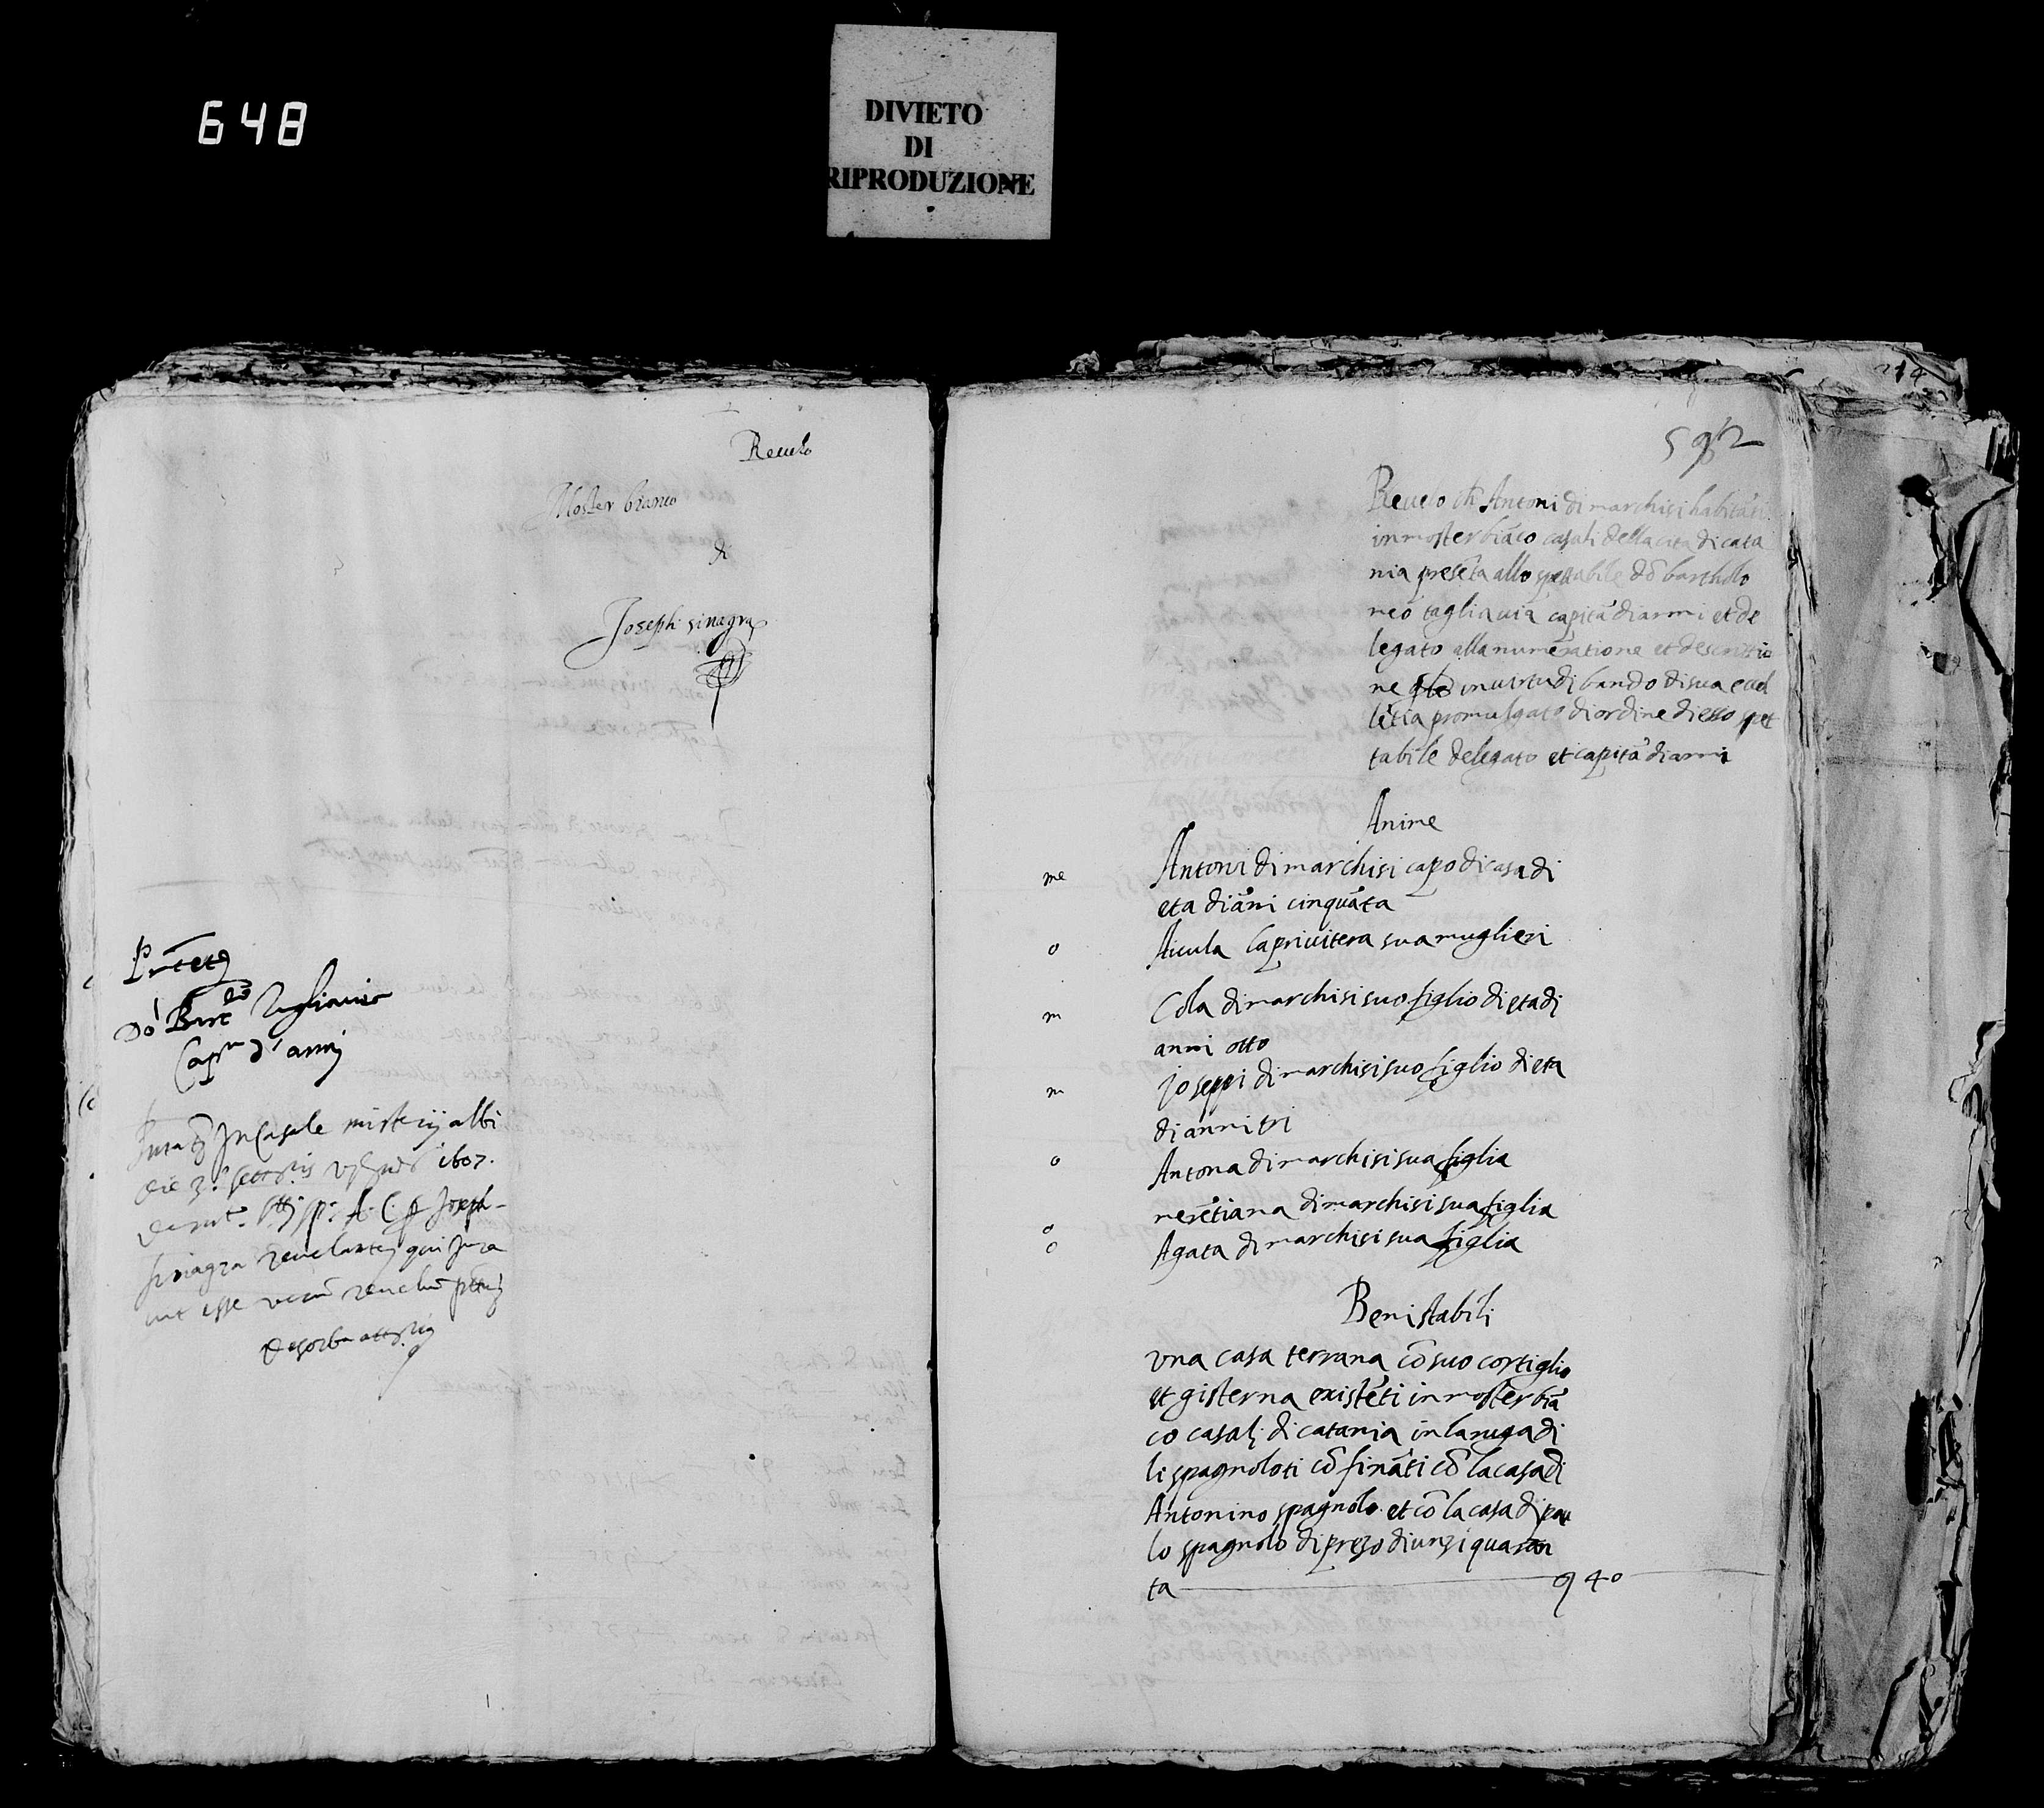 648
DIVIETO
DI
RIPRODUZIONE
Revelo
Moster bianco
di
Joseph sinagra
Do Bartᵉᵒ Tagliavia
Capⁿ d'armi
In Casale misterij albi
die 3º 1607.
Joseph
sinagra revelante qui jura
vit esse verum revelum
214
592
Revelo di Antoni di marchisi habitāti
in mosterbiāco casali della cita di cata
nia presēta allo spettabile dō bartholo
meo tagliavia capitā di armi et de
legato alla numeratione et descrittio
ne in virtu di bando di sua eccel
lētia promulgato di ordine di esso spet
tabile delegato et capitā di armi
Anime
me Antoni di marchisi capo di casa di
eta di āni cinquāta
o Aiula la privitera sua muglieri
m Cola di marchisi suo figlio di eta di
anni otto
m Joseppi di marchisi suo figlio di eta
di anni tri
o Antona di marchisi sua figlia
o nerētiana di marchisi sua figlia
o Agata di marchisi sua figlia
Beni stabili
una casa terrana cō suo cortiglio
et gisterna existēti in mosterbiā
co casali di catania in la ruga di
li spagnoloti cō fināti cō la casa di
Antonino spagnolo et cō la casa di pau
lo spagnolo di prezo di unzi quaran
ta 40